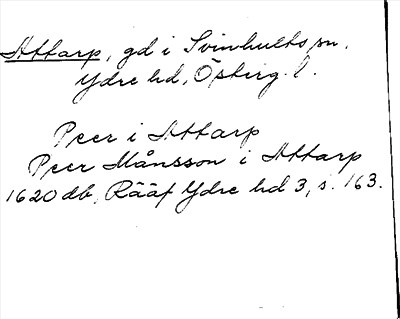 Attarp, gd i Svinhults sn.
Ydre hd, Österg. l.
Peer i Attarp
Peer Månsson i Attarp
1620 db, Rääf Ydre hd 3, s. 163.